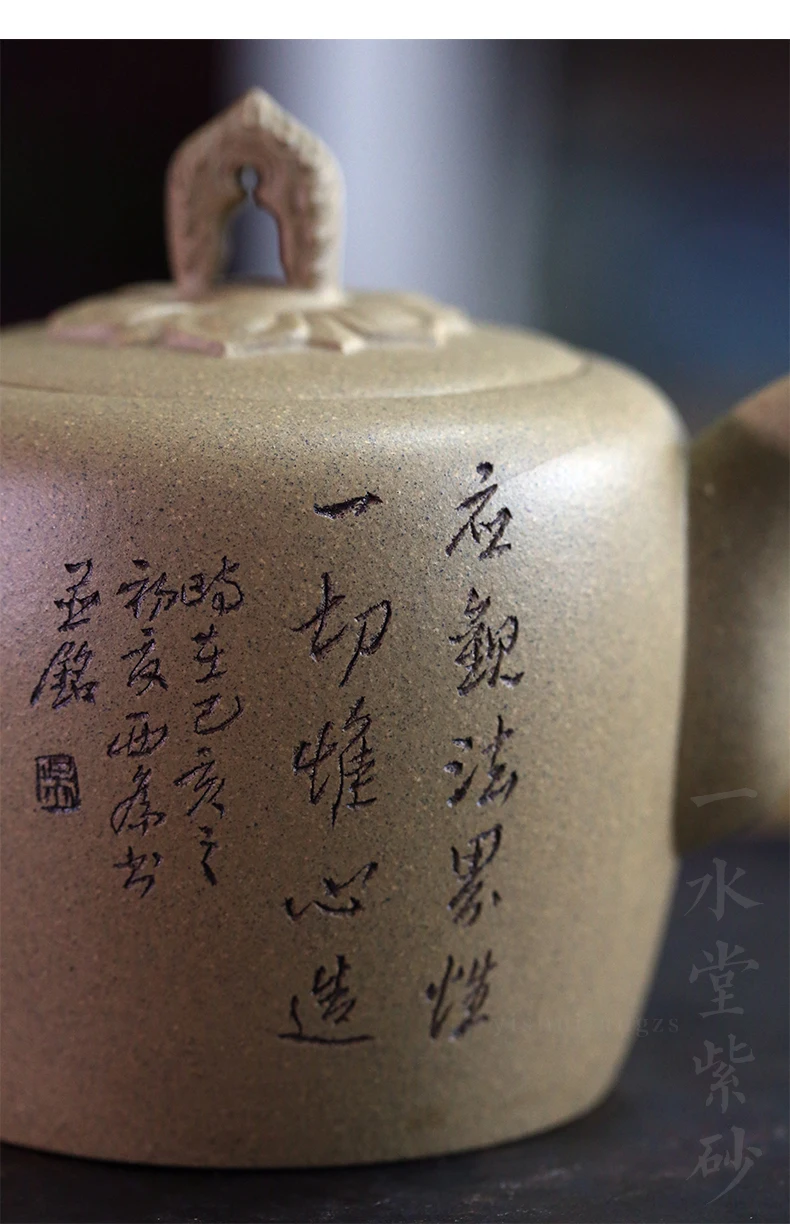 應觀法界性
一切惟心造
時在己亥之
初夜西泠书
並銘
一水堂紫砂